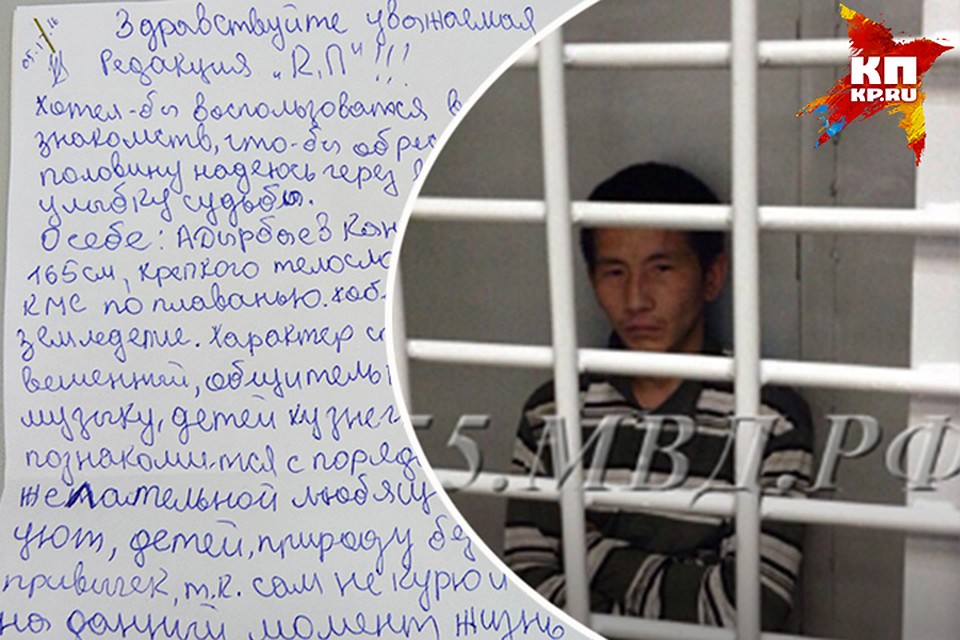 05.1 16
Здравствуйте уважаемая
Редакция „R.П"!!!
хотел-бы воспользоватся в
знакомств, что-бы обрес
половину надеюсь через в
улыбку судьбы.
О себе: Адырбаев Кан
165см, крепкого телосло
КМС по плаванью. хоб
земледелие. Характер со
вешенный, общитель
музыку, детей кузнег
познакомится с поряд
желательной любящ
уют, детей, природу без
привычек, т.к. сам не курю и
на данный момент жизнь
КП
KP.RU
55.МВД.РФ